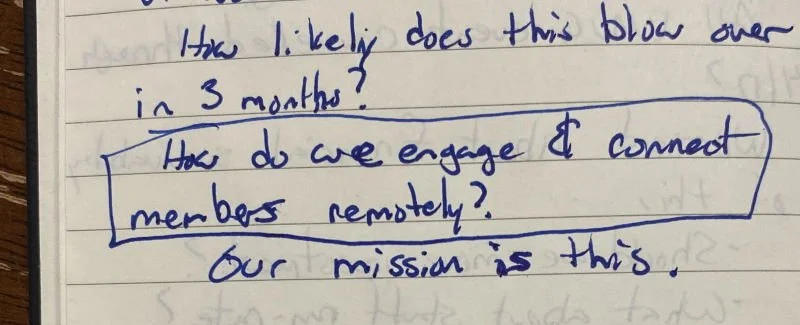 How likely does this blow over
in 3 months?
How do we engage & connect
members remotely?
Our mission is this.